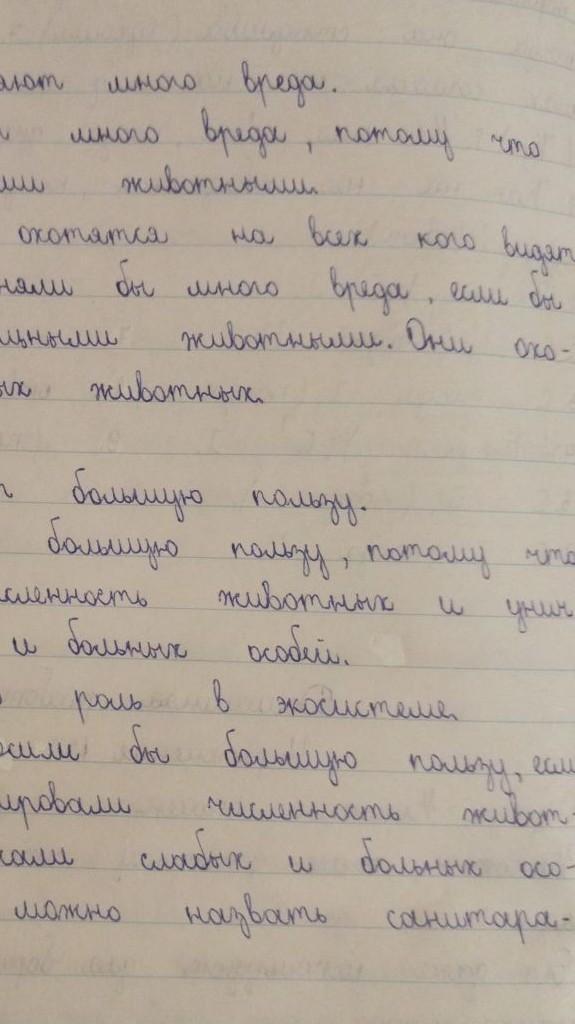 яют много вреда.
много вреда, потому что
ими животными.
охотятся на всех кого видят
няли бы много вреда, если бы
льными животными. Они охо-
ых животных.
большую пользу.
большую пользу, потому что
исленность животных и унич
и больных особей.
роль в экосистеме.
осили бы большую пользу, если
ировали численность живот-
жали слабых и больных осо-
можно назвать санитара-